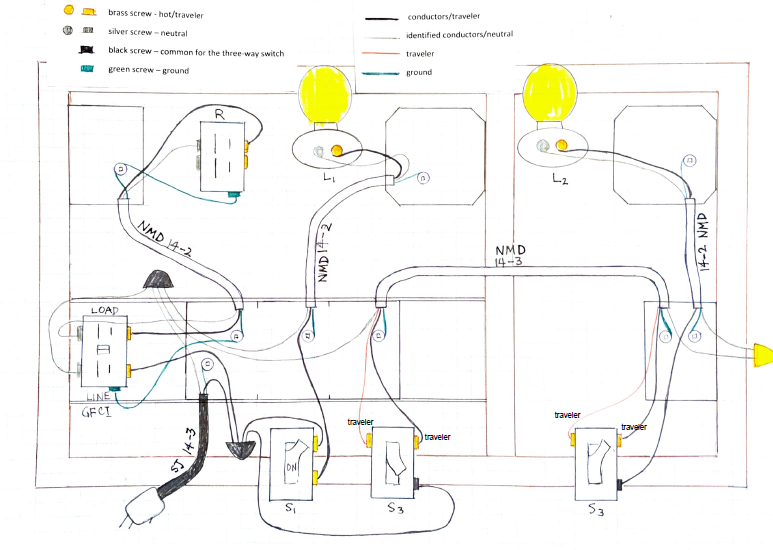 brass screw - hot/traveler
silver screw – neutral
black screw – common for the three-way switch
green screw – ground
conductors/traveler
identified conductors/neutral
traveler
ground
R
L1
L2
NMD 14-2
NMD 14-2
NMD
14-3
14-2 NMD
LOAD
LINE
GFCI
SJ 14-3
ON
S1
traveler
traveler
S3
traveler
traveler
S3